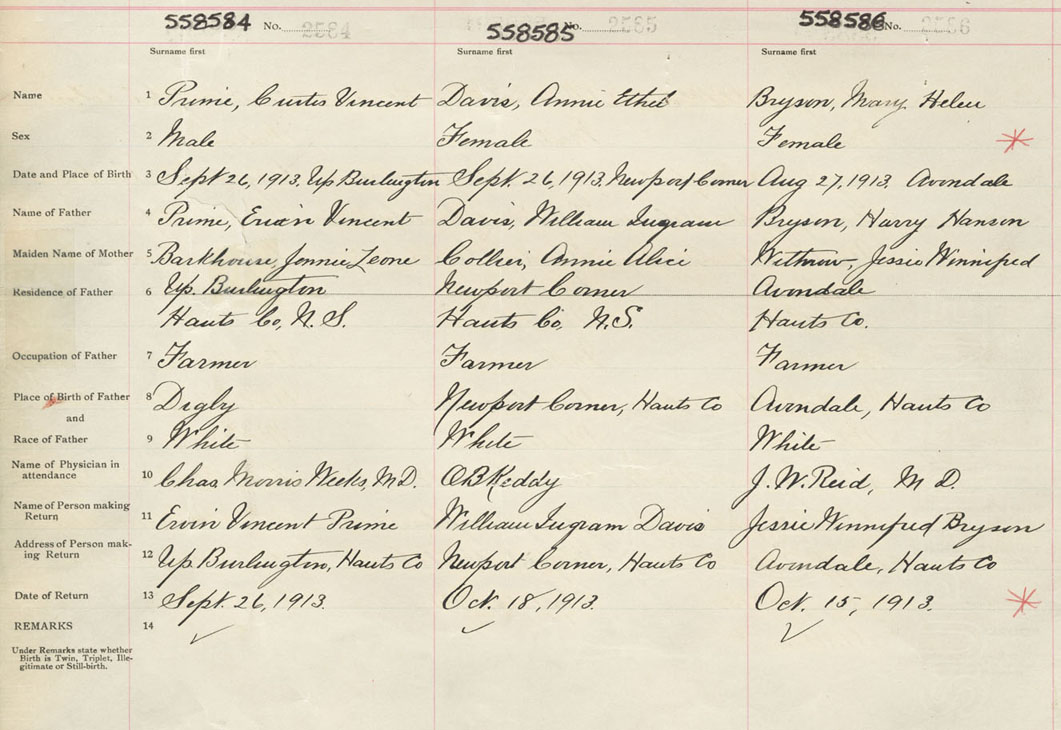 558584 No. 2584 558585 No. 2585 558586 No. 2586
Surname first Surname first Surname first
Name 1 Prime, Curtis Vincent Davis, Annie Ethel Bryson, Mary Helen
Sex 2 Male Female Female
Date and Place of Birth 3 Sept 26, 1913. Up Burlington Sept. 26, 1913. Newport Corner Aug 27, 1913. Avondale
Name of Father 4 Prime, Ervin Vincent Davis, William Ingram Bryson, Harry Hanson
Maiden Name of Mother 5 Barkhouse, Jennie Leone Collier, Annie Alice Withrow, Jessie Winnifred
Residence of Father 6 Up. Burlington Newport Corner Avondale
Hants Co, N. S. Hants Co, N.S. Hants Co.
Occupation of Father 7 Farmer Farmer Farmer
Place of Birth of Father 8 Digby Newport Corner, Hants Co Avondale, Hants Co
and
Race of Father 9 White White White
Name of Physician in
attendance 10 Chas Morris Weeks, M.D. O B Keddy J. W. Reid, M D.
Name of Person making
Return 11 Ervin Vincent Prime William Ingram Davis Jessie Winnifred Bryson
Address of Person mak-
ing Return 12 Up. Burlington, Hants Co Newport Corner, Hants Co Avondale, Hants Co
Date of Return 13 Sept. 26, 1913. Oct. 18, 1913. Oct. 15, 1913.
REMARKS 14
Under Remarks state whether
Birth is Twin, Triplet, Ille-
gitimate or Still-birth.